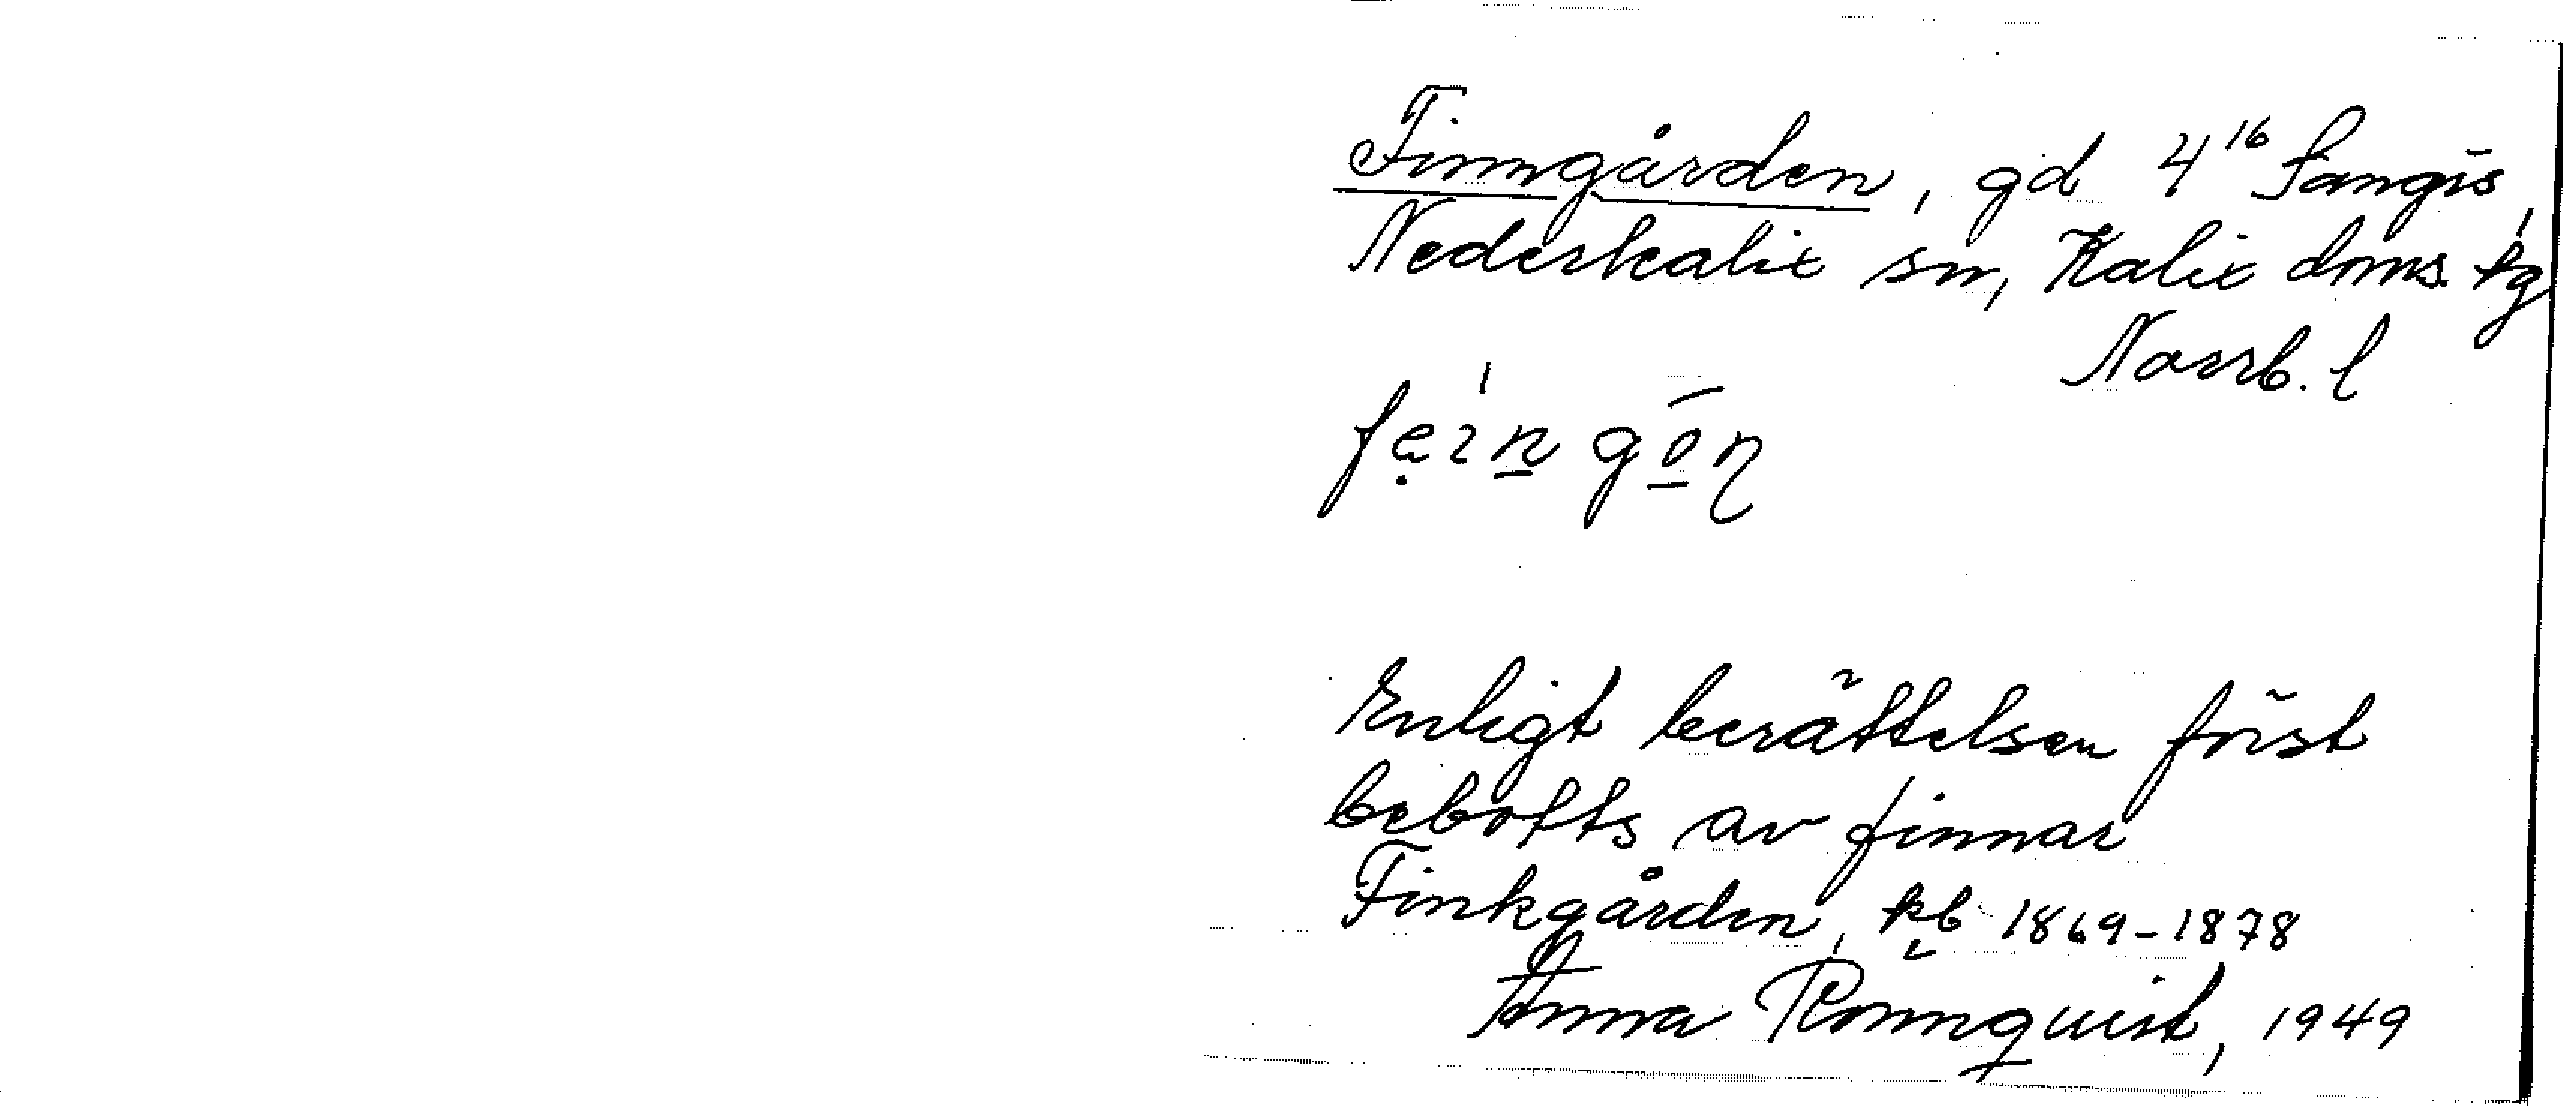 Finngården, gd 4¹⁶ Sangis,
Nederkalix sn, Kalix doms. tg
Norrb. l
fẹ́ɪn̲ gō̲ɳ
Enligt berättelsen först
bebotts av finnar
Finkgården, kb 1869-1878
Anna Rönnquist, 1949